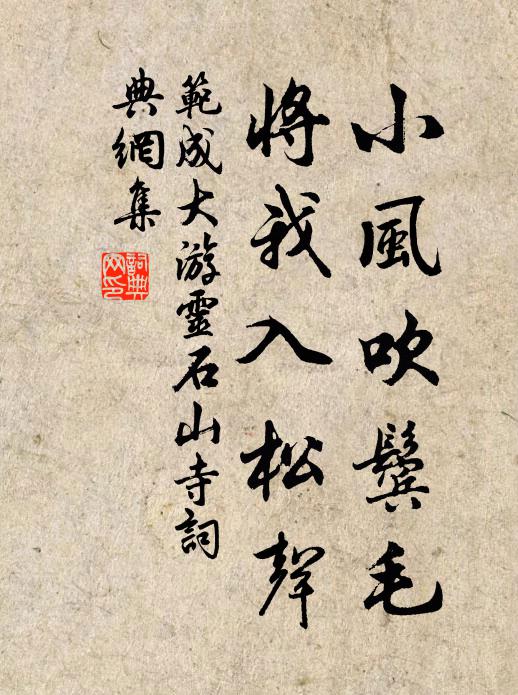 小風吹鬓毛
將我入松聲
範成大游靈石山寺詞
典網集
詞典網印